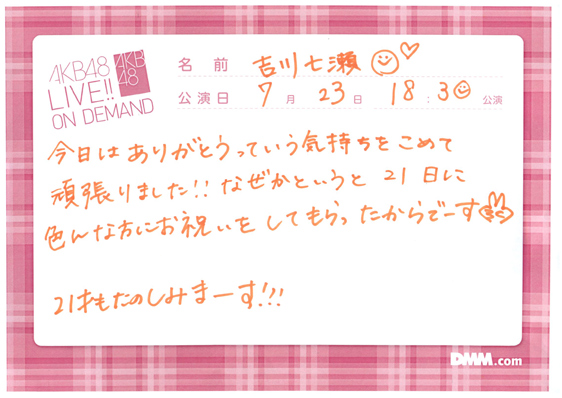 AKB48
LIVE!!
ON DEMAND
AKB
48
名前 吉川七瀬
公演日 7月23日 18:30 公演
今日はありがとうっていう気持ちをこめて
頑張りました!! なぜかというと 21日に
色んな方にお祝いをしてもらったからでーす
21才もたのしみまーす!!!
DMM.com